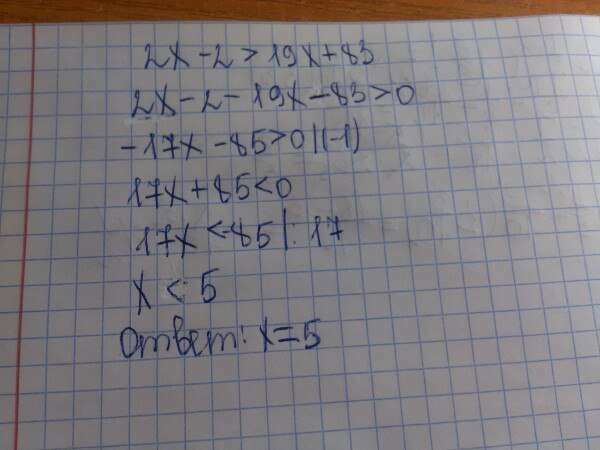 2x-2>19x+83
2x-2-19x-83>0
-17x-85>0|(-1)
17x+85<0
17x<-85|:17
x<5
Ответ: x=5